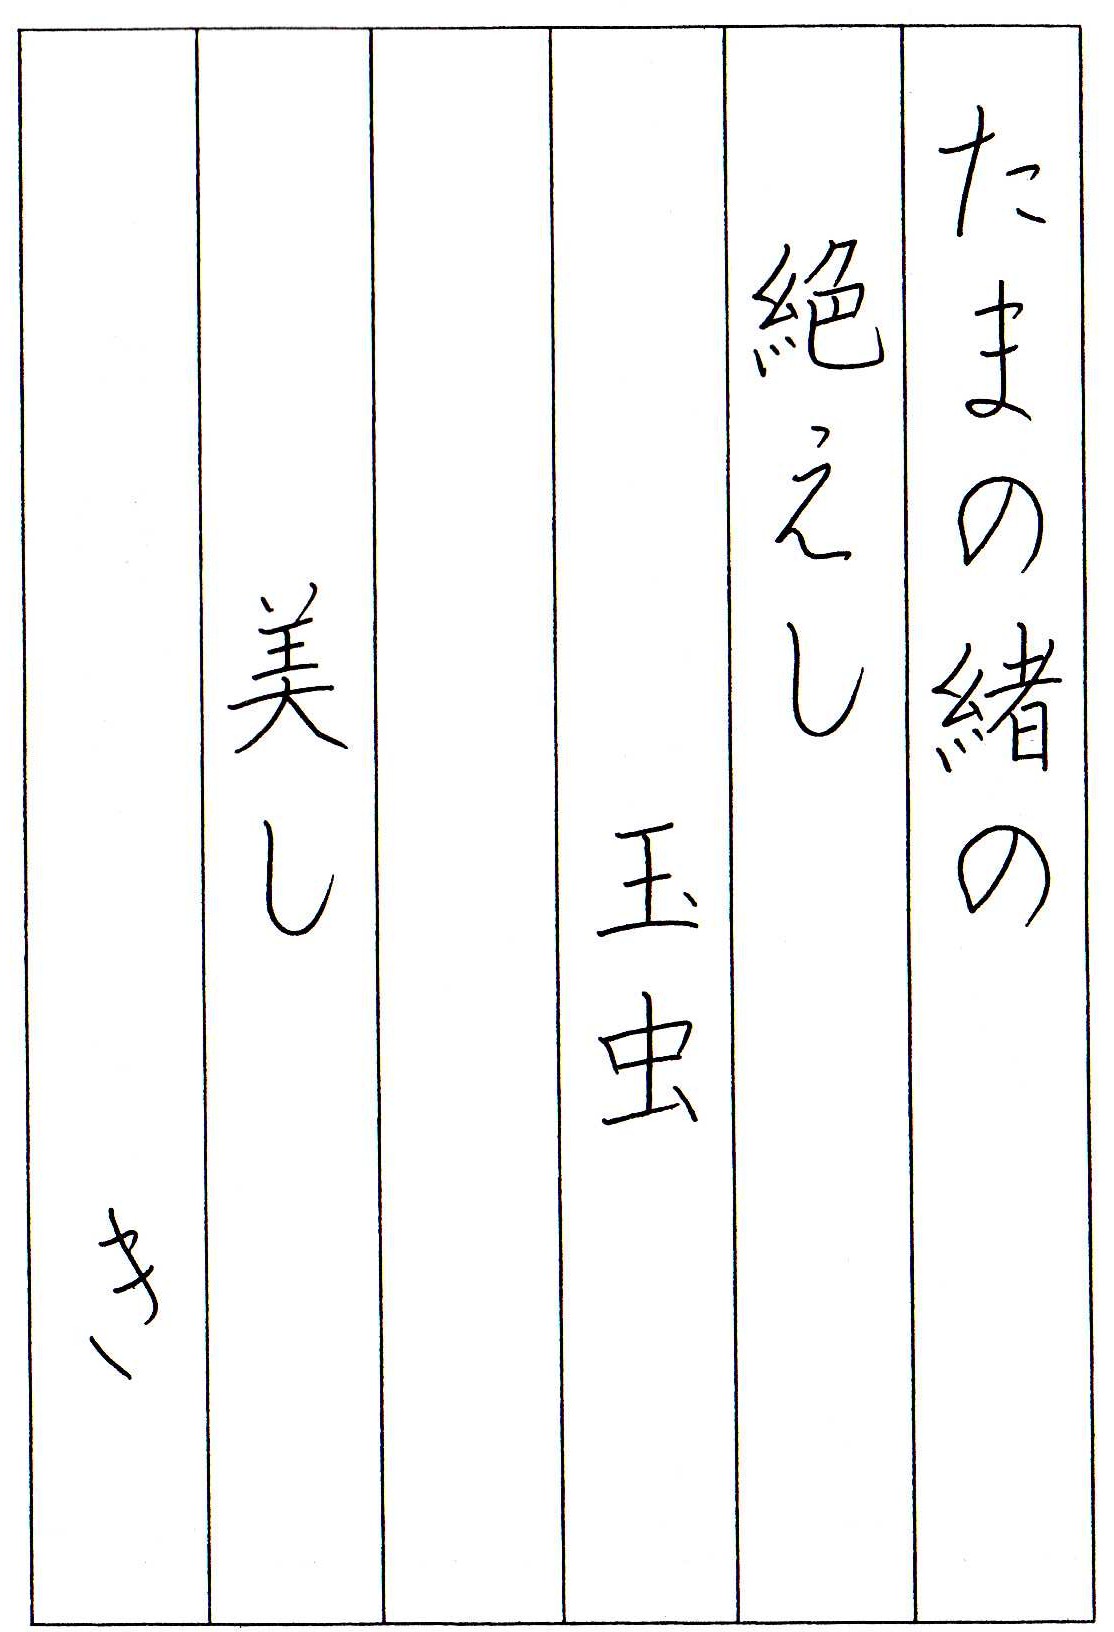 たまの緒の
絶えし
玉虫
美し
き